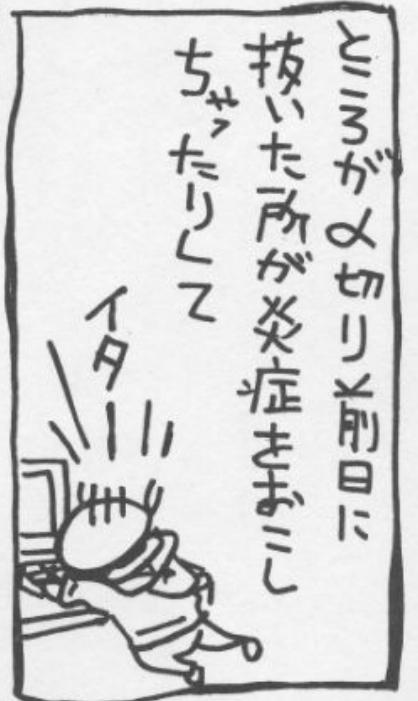 ところが〆切り前日に
抜いた所が炎症をおこし
ちゃったりして
イター